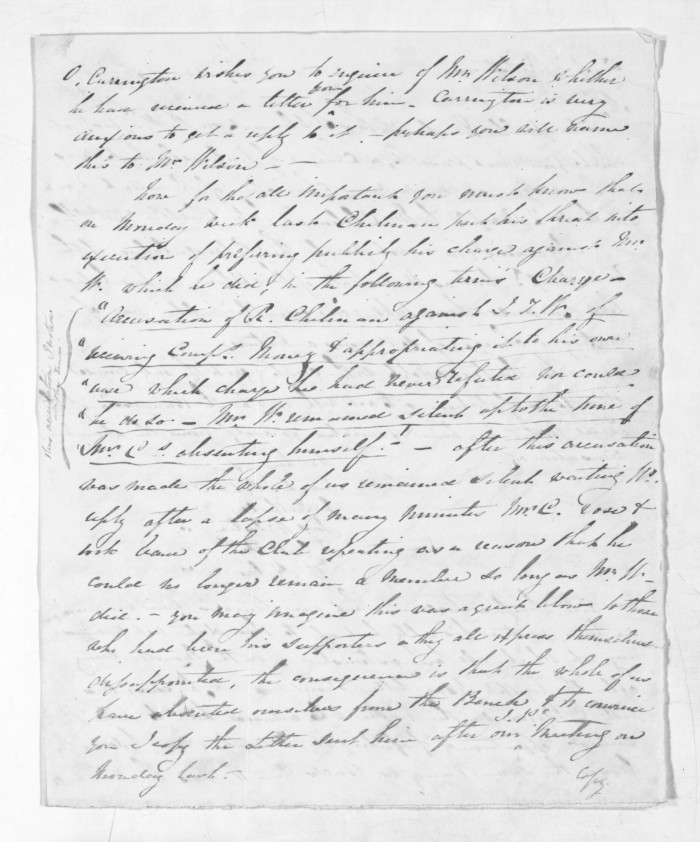 O. Carrington wishes you to enquire of Mr. Wilson whether
he have received a letter from him - Carrington is very
anxious to get a reply to it. - perhaps you will name
this to Mr Wilson - -
Now for the all important you must know that
on Monday week last Chilman put his threat into
execution of preferring publicly his charge against Mr.
W. which he did, in the following terms Charge -
"Accusation of R. Chilman against I. T. W. of
"receiving Comps. Money & appropriating it to his own
"use which charge he had never refuted nor could
"he do so - Mr W. remained silent up to the time of
Mr C's. absenting himself." - after this accusation
was made the whole of us remained silent waiting W's.
reply after a lapse of many minutes Mr C. rose &
took leave of the Club repeating as a reason that he
could no longer remain a member so long as Mr W-
did. - you may imagine this was a great blow to those
who had been his supporters & they all express themselves
disappointed, the consequence is that the whole of us
have absented ourselves from the Bench, & to convince
you I copy the letter sent him after our Meeting on
Monday last. -
Copy
this accusation